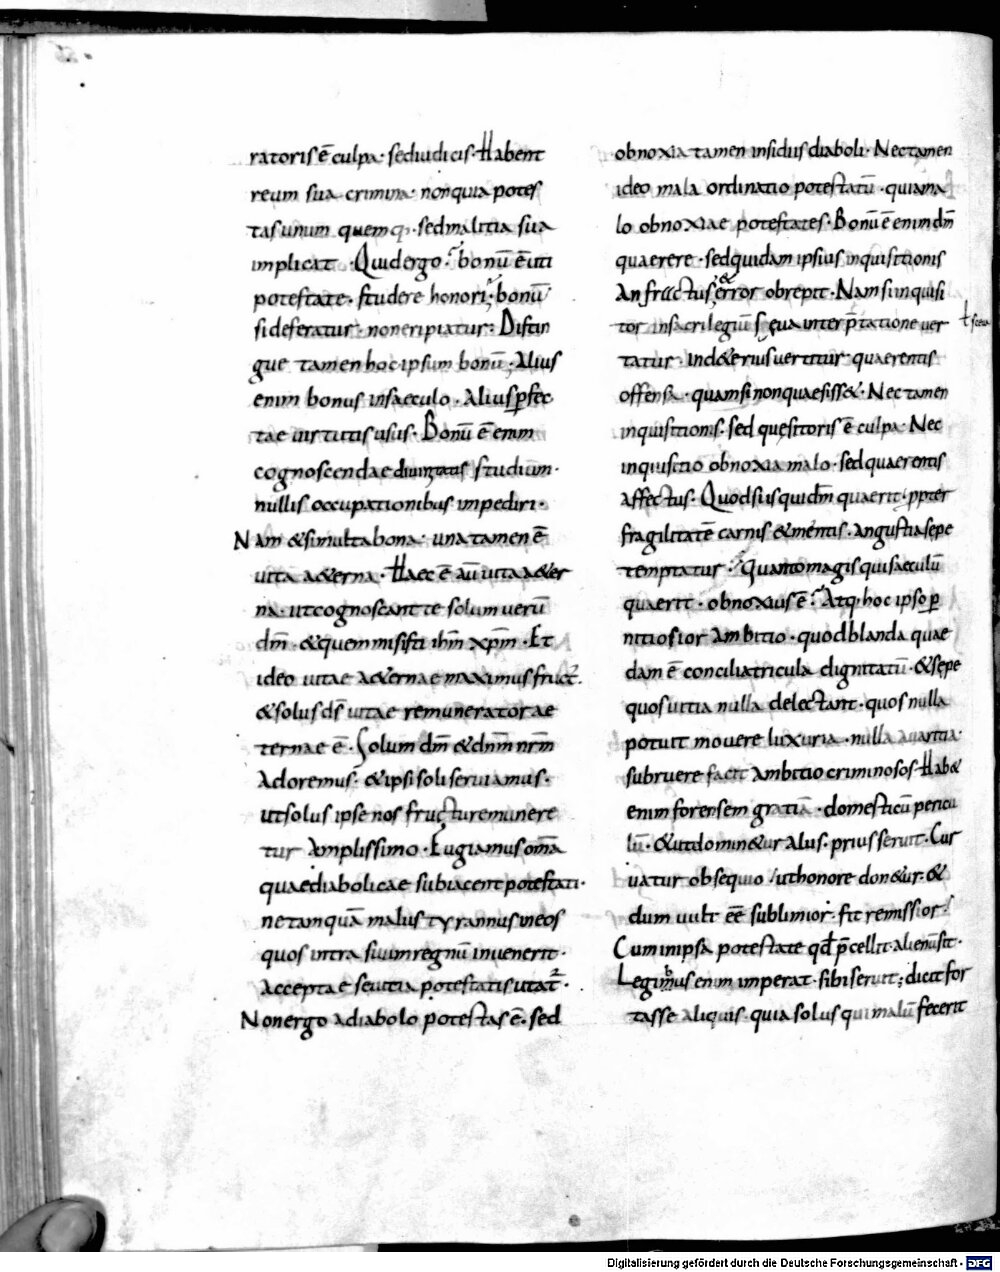 ratoris ē culpa· sed iudicis· Habent
reum sua crimina· non quia potes
tas unum quemq· sed malitia sua
implicat· Quid ergo? bonū ē uti
potestate· studere honori; bonū
si deferatur· non eripiatur; Distin
gue tamen hoc ipsum bonū; Alius
enim bonus in saeculo· Alius ꝑfec
tae uirtutis usus· Bonū ē enim
cognoscendae diuinitatis studium·
nullis occupationibus impediri·
Nam & si multa bona· una tamen ē
uita aeterna· Haec ē aū uita aeter
na· ut cognoscant te solum uerū
dm̄· & quem misisti ihm̄ xpm̄· Et
ideo uitae aeternae maximus fruct·
& solus ds̄ uitae remunerator ae
ternae ē· Solum dm̄ & dnm̄ nrm̄
adoremus· & ipsi soli seruiamus·
ut solus ipse nos fructu remunere
tur amplissimo· Fugiamus om̄a
quae diabolicae subiacent potestati·
ne tamquā malus tyrannus in eos
quos intra suum regnū inuenerit·
acceptae seuitia potestatis utat·
Non ergo a diabolo potestas ē· sed
obnoxia tamen insidiis diaboli· Nec tamen
ideo mala ordinatio potestatū· quia ma
lo obnoxiae potestates· Bonū ē enim dm̄
quaerere· sed quidam ipsius inquisitionis
anfractus & error obrepit· Nam si inquisi
tor in sacrilegiū scęua interp̄tatione uer
tatur· inde eius uertitur· quaerentis
offensa· quam si non quaesisset· Nec tamen
inquisitionis· sed quęsitoris ē culpa· Nec
inquisitio obnoxia malo· sed quaerentis
affectus· Quod si is qui dm̄ quaerit· ꝓpter
fragilitatē carnis & mentis· angustia sepe
temptatur· Quanto magis qui saeculū
quaerit· obnoxius ē? Atq· hoc ipso ꝑ
nitiosior ambitio· quod blanda quae
dam ē conciliatricula dignitatū· & sepe
quos uitia nulla delectant· quos nulla
potuit mouere luxuria· nulla auaritia·
subruere facit ambitio criminosos· Hab&
enim forensem gratiā· domesticū pericu
lū· & ut dominetur aliis· prius seruit· Cur
uatur obsequio ut honore donetur· &
dum uult eē sublimior· fit remissior·
Cum in ipsa potestate qd p̄cellit· alienū sit·
Legibus enim imperat· sibi seruit; dicit for
tasse aliquis· quia solus qui malū fecerit
Digitalisierung gefördert durch die Deutsche Forschungsgemeinschaft - DFG